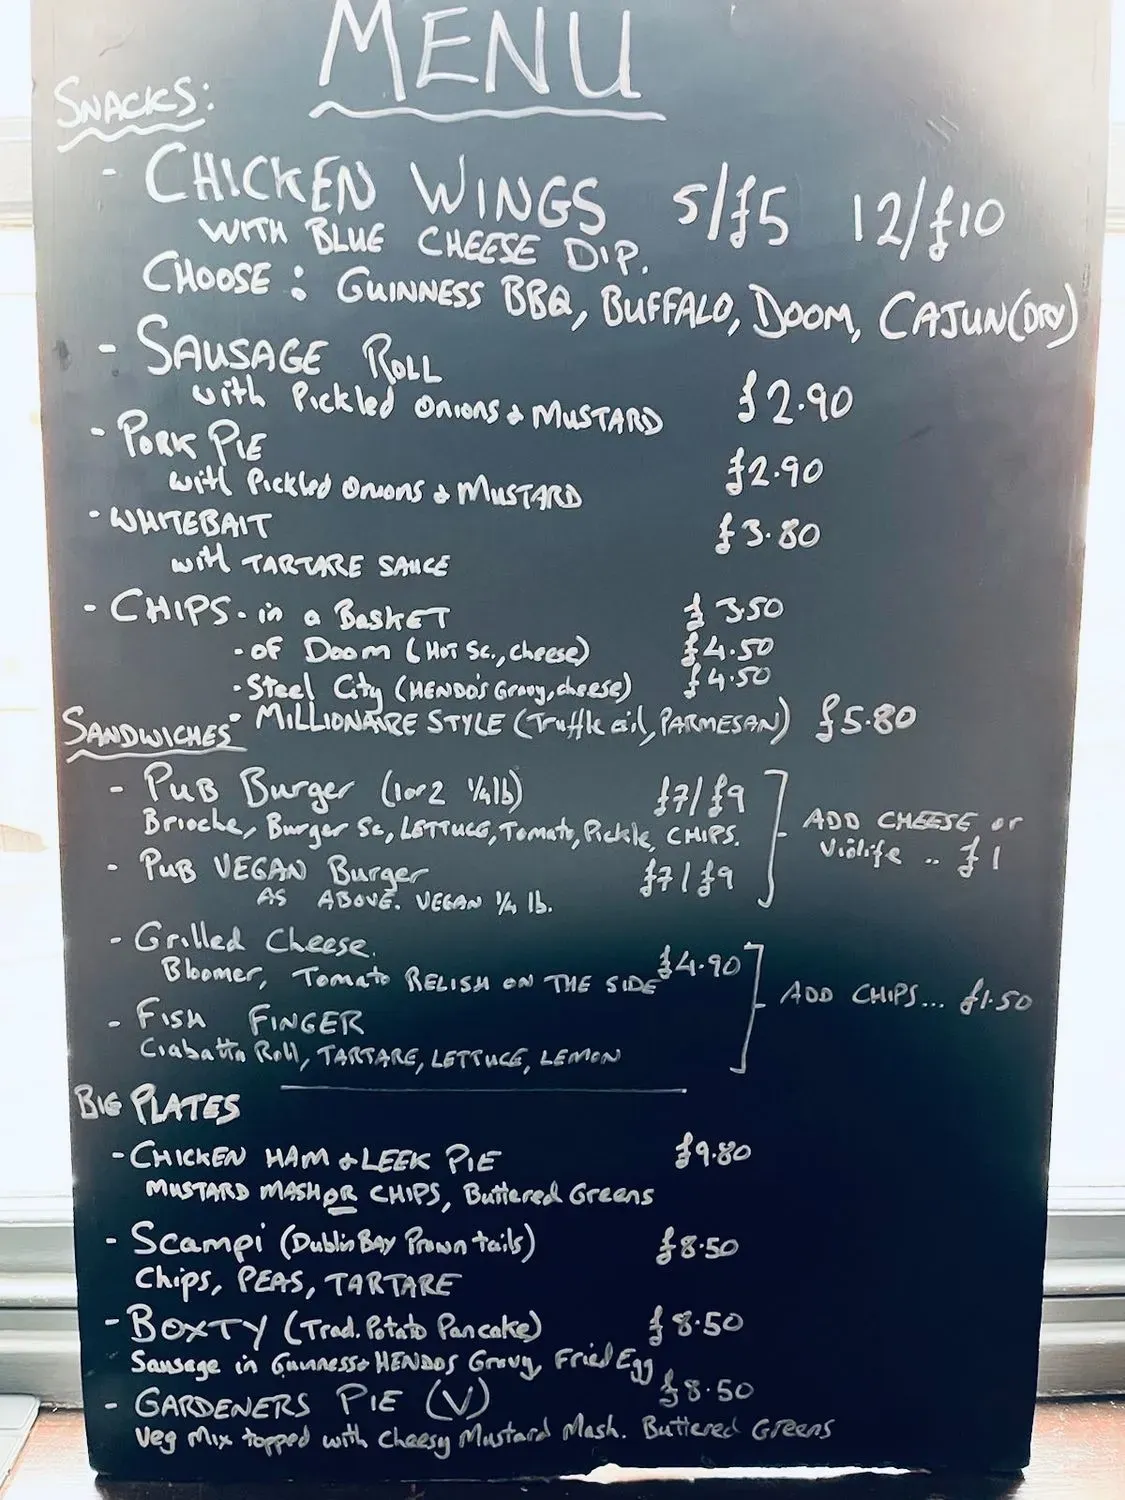 MENU
SNACKS:
- CHICKEN WINGS 5/£5 12/£10
WITH BLUE CHEESE DIP.
CHOOSE: GUINNESS BBQ, BUFFALO, DOOM, CAJUN (DRY)
- SAUSAGE ROLL
with Pickled Onions & MUSTARD £2.90
- PORK PIE
with Pickled Onions & MUSTARD £2.90
- WHITEBAIT £3.80
with TARTARE SAUCE
- CHIPS - in a BASKET £3.50
- OF Doom (Hot Sc., cheese) £4.50
- Steel City (HENDO'S Gravy, cheese) £4.50
- MILLIONAIRE STYLE (Truffle oil, PARMESAN) £5.80
SANDWICHES
- PUB Burger (1 or 2 1/4 lb) £7/£9
Brioche, Burger Sc, LETTUCE, Tomato, Pickle, CHIPS.
ADD CHEESE or
Violife .. £1
- PUB VEGAN Burger £7/£9
AS ABOVE. VEGAN 1/4 lb.
- Grilled Cheese.
Bloomer, Tomato RELISH ON THE SIDE £4.90
ADD CHIPS... £1.50
- FISH FINGER
Ciabatta Roll, TARTARE, LETTUCE, LEMON
BIG PLATES
- CHICKEN HAM & LEEK PIE £9.80
MUSTARD MASH OR CHIPS, Buttered Greens
- Scampi (Dublin BAY Prawn tails) £8.50
Chips, PEAS, TARTARE
- BOXTY (Trad. Potato Pancake) £8.50
Sausage in Guinness & HENDOS Gravy, Fried Egg
- GARDENERS PIE (V) £8.50
Veg Mix topped with Cheesy Mustard Mash. Buttered Greens